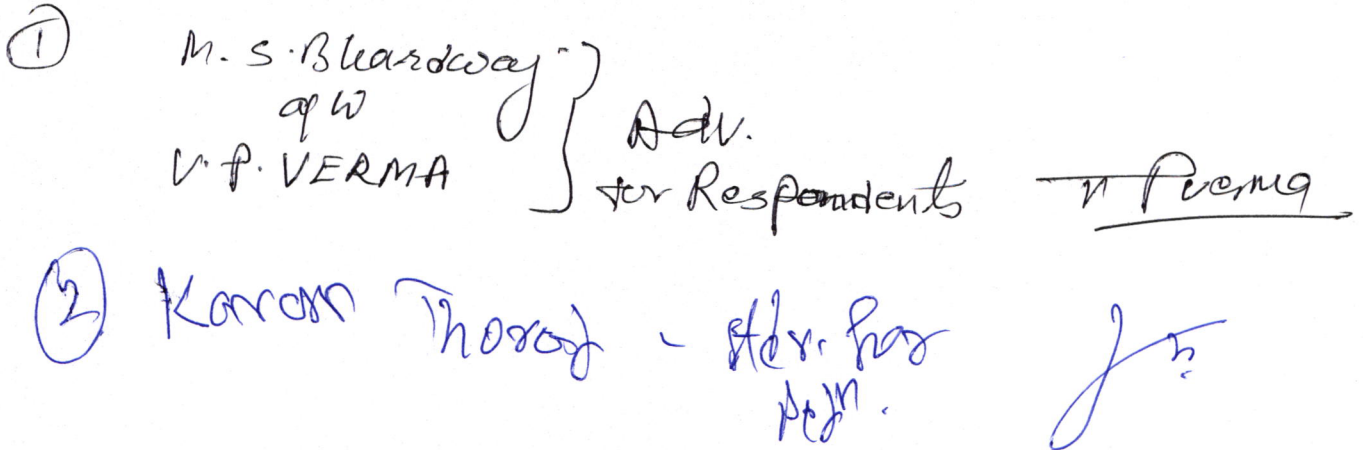 ① M. S. Bhardwaj
a/w
V. P. VERMA
Adv.
for Respondents
② Karan Thorat - Adv. for
Petn.